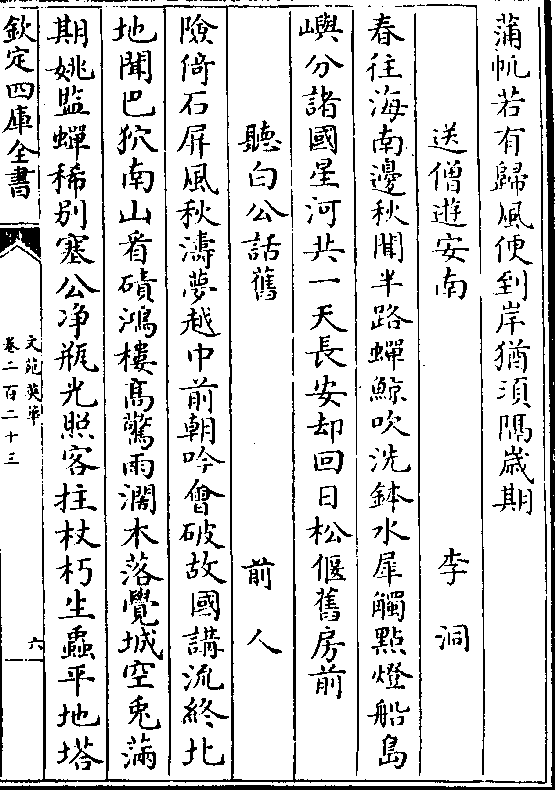 蒲帆若有歸風便到岸猶須隔歲期
送僧遊安南 李洞
春往海南邊秋聞半路蟬鯨吹洗鉢水犀觸點燈船島
嶼分諸國星河共一天長安却回日松偃舊房前
聽白公話舊 前人
險倚石屏風秋濤夢越中前朝吟會破故國講流終北
地聞巴狖南山看磧鴻樓髙驚雨濶木落覺城空兎滿
期姚監蟬稀别塞公净瓶光照客拄杖朽生蟲平地塔
欽定四庫全書
文苑英華
卷二百二十三
六